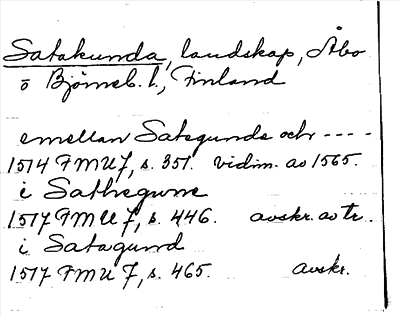 Satakunda, landskap, Åbo
o Björneb. l., Finland
emellan Satagunda och ----
1514 FMU 7, s. 351. vidim. av 1565.
i Sathegune
1517 FMU 7, s. 446. avskr. av tr.
i Satagund
1517 FMU 7, s. 465. avskr.